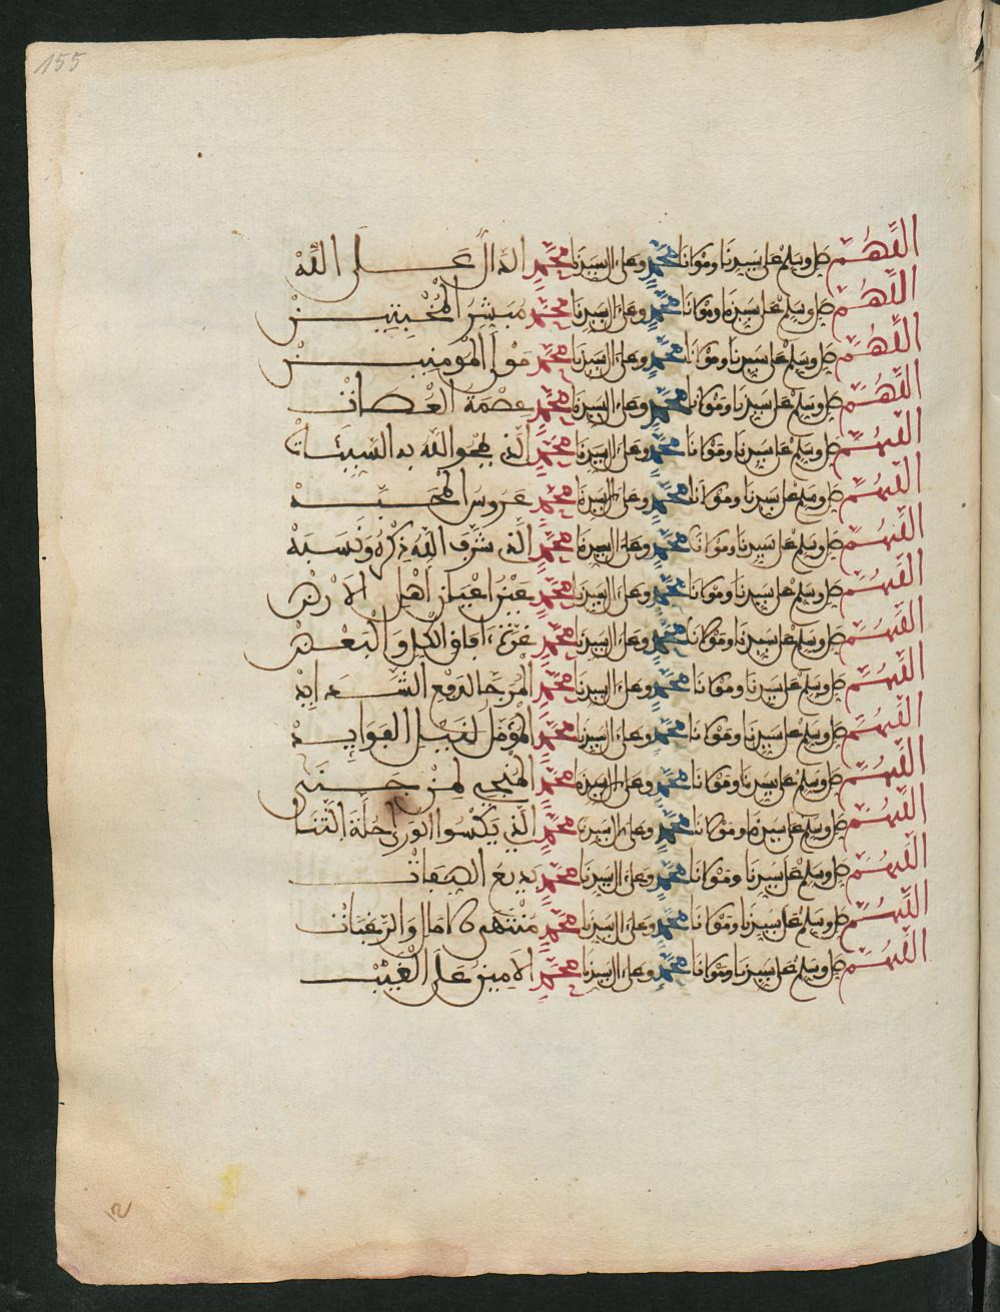 155
اللهم صل وسلم على سيدنا ومولانا محمد وعلى ءال سيدنا محمد الدال على الله
اللهم صل وسلم على سيدنا ومولانا محمد وعلى ءال سيدنا محمد مبشر المخبتين
اللهم صل وسلم على سيدنا ومولانا محمد وعلى ءال سيدنا محمد مولى المومنين
اللهم صل وسلم على سيدنا ومولانا محمد وعلى ءال سيدنا محمد عصمة العصات
اللهم صل وسلم على سيدنا ومولانا محمد وعلى ءال سيدنا محمد الذي يمحو الله به السيئات
اللهم صل وسلم على سيدنا ومولانا محمد وعلى ءال سيدنا محمد عروس المحبة
اللهم صل وسلم على سيدنا ومولانا محمد وعلى ءال سيدنا محمد الذي شرف الله ذكره ونسبه
اللهم صل وسلم على سيدنا ومولانا محمد وعلى ءال سيدنا محمد عين اعيان اهل الارض
اللهم صل وسلم على سيدنا ومولانا محمد وعلى ءال سيدنا محمد ءافاق الكل والبعض
اللهم صل وسلم على سيدنا ومولانا محمد وعلى ءال سيدنا محمد المرجا لدفع الشدايد
اللهم صل وسلم على سيدنا ومولانا محمد وعلى ءال سيدنا محمد المومل لنيل الفوايد
اللهم صل وسلم على سيدنا ومولانا محمد وعلى ءال سيدنا محمد المنجي لمن جنى
اللهم صل وسلم على سيدنا ومولانا محمد وعلى ءال سيدنا محمد الذي يكسوا الورى حلة الثنا
اللهم صل وسلم على سيدنا ومولانا محمد وعلى ءال سيدنا محمد بديع الصفات
اللهم صل وسلم على سيدنا ومولانا محمد وعلى ءال سيدنا محمد منتهى الامال والرغبات
اللهم صل وسلم على سيدنا ومولانا محمد وعلى ءال سيدنا محمد الامين على الغيب